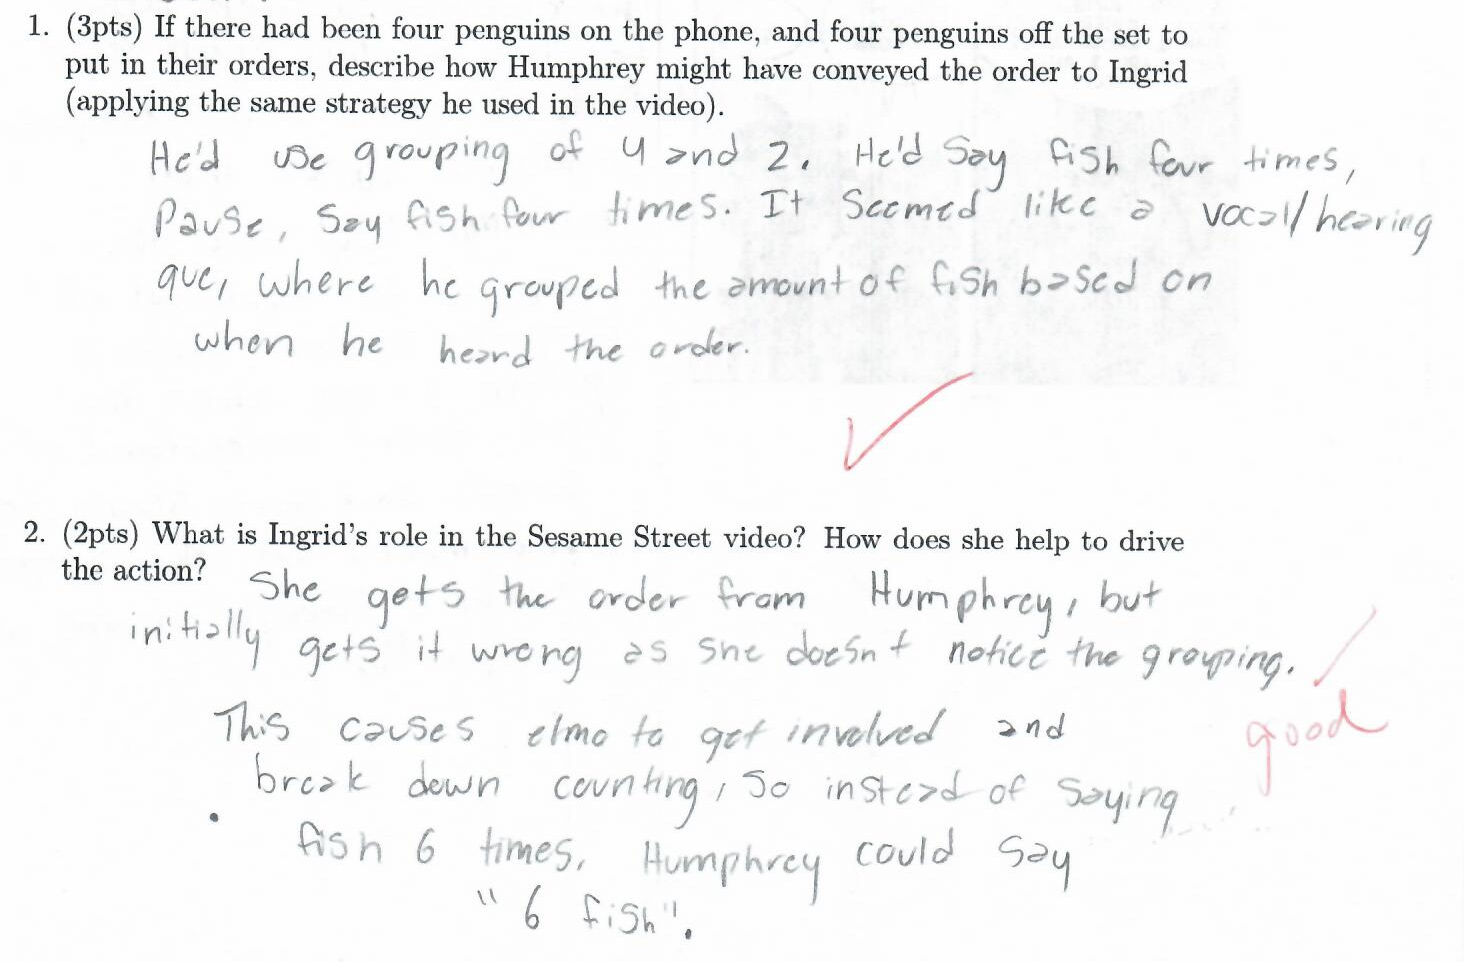 1. (3pts) If there had been four penguins on the phone, and four penguins off the set to
put in their orders, describe how Humphrey might have conveyed the order to Ingrid
(applying the same strategy he used in the video).
He'd use grouping of 4 and 2. He'd Say fish four times,
Pause, Say fish four times. It Seemed like a vocal/hearing
que, where he grouped the amount of fish based on
when he heard the order.
2. (2pts) What is Ingrid's role in the Sesame Street video? How does she help to drive
the action? She gets the order from Humphrey, but
initially gets it wrong as she doesn't notice the grouping.
good
This causes elmo to get involved and
break down counting, So instead of Saying
fish 6 times, Humphrey could Say
"6 fish".